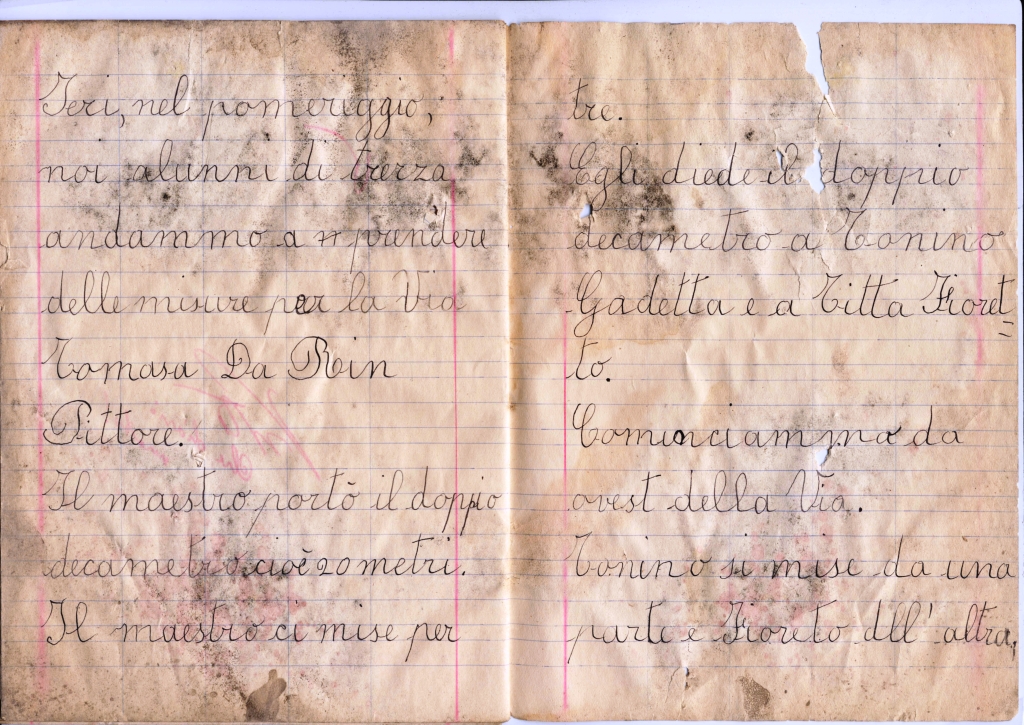 Ieri, nel pomereggio,
noi alunni di trerza
andammo a prendere
delle misure per la Via
Tomasa Da Rin
Pittore.
Il maestro portò il doppio
decametro cioè 20 metri.
Il maestro ci mise per
tre.
Egli diede il doppio
decametro a Tonino
Gadetta e a Titta Fioret=
to.
Cominciammo da
ovest della Via.
Tonino si mise da una
parte e Fioreto dll' altra,